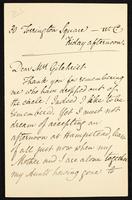 30 Torrington Square — W.C.
Friday afternoon.
Dear Mrs Gilchrist
Thank you for remembering
me who have dropped out of
the circle! Indeed I like to be
remembered. Yet I must not
dream of accepting an
afternoon at Hampstead,
late just now when my
Mother and I are alone together
my Aunts having gone to